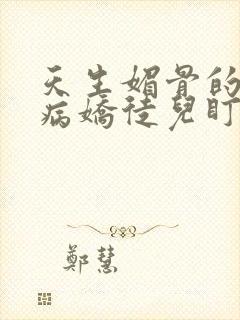 天生媚骨的
病嬌徒兒盯
鄭慧